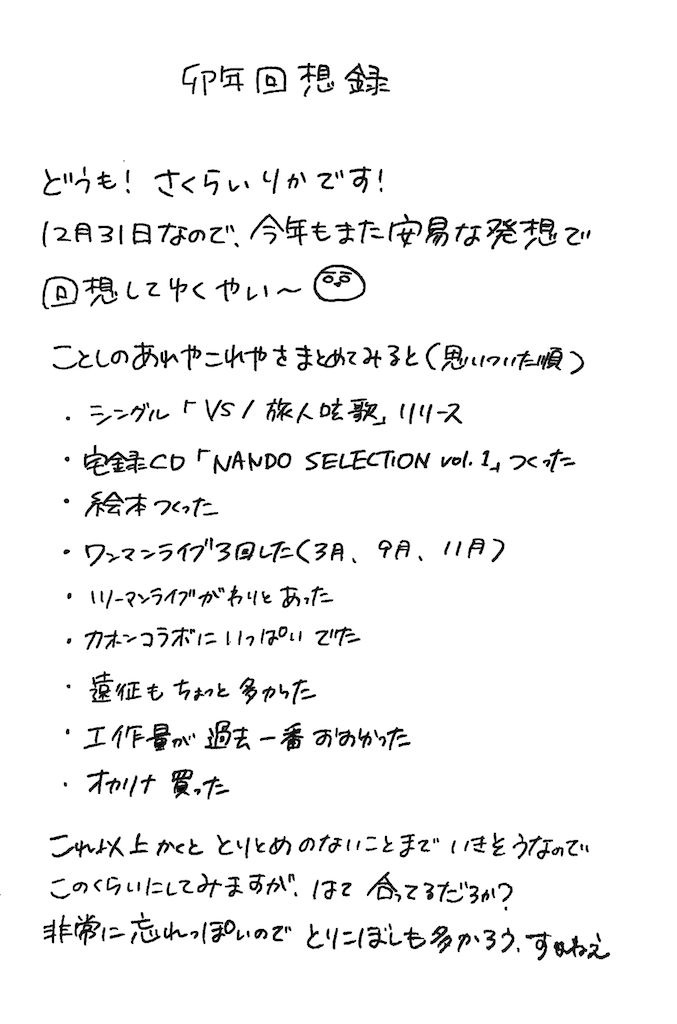 卯年回想録
どうも！さくらいりかです！
12月31日なので、今年もまた安易な発想で
回想してゆくやい〜
ことしのあれやこれやをまとめてみると(思いついた順)
・シングル「VS / 旅人呟歌」リリース
・宅録CD「NANDO SELECTION vol.1」つくった
・絵本つくった
・ワンマンライブ3回した(3月、9月、11月)
・ツーマンライブがわりとあった
・カホンコラボにいっぱいでた
・遠征もちょっと多かった
・工作量が過去一番おおかった
・オカリナ買った
これ以上かくと とりとめのないことまで いきそうなので
このくらいにしてみますが、はて 合ってるだろか?
非常に忘れっぽいので とりこぼしも多かろう、すまねえ